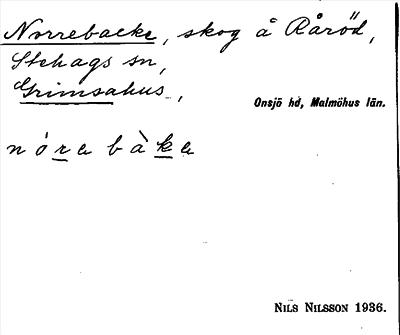 Norrebacke, skog å Råröd,
Stehags sn,
Grimsahus,
Onsjö hd, Malmöhus län.
nóre bàke
NILS NILSSON 1936.